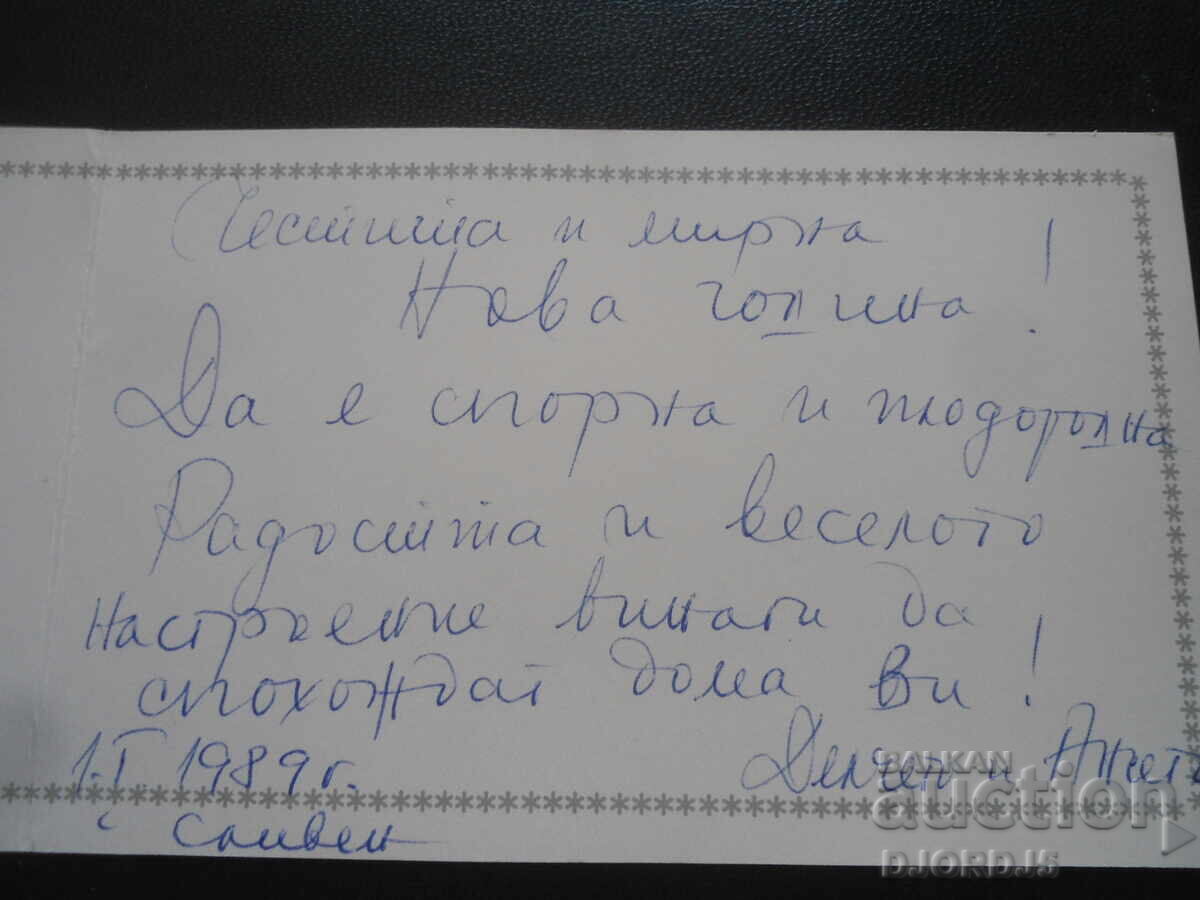 Честита и мирна
Нова година !
Да е спорна и плодородна
Радостта и веселото
настроение винаги да
спохождат дома Ви !
1.I.1989 г.
Делчен и Анета
Сливен
BALKAN
auction
DJORDJ5